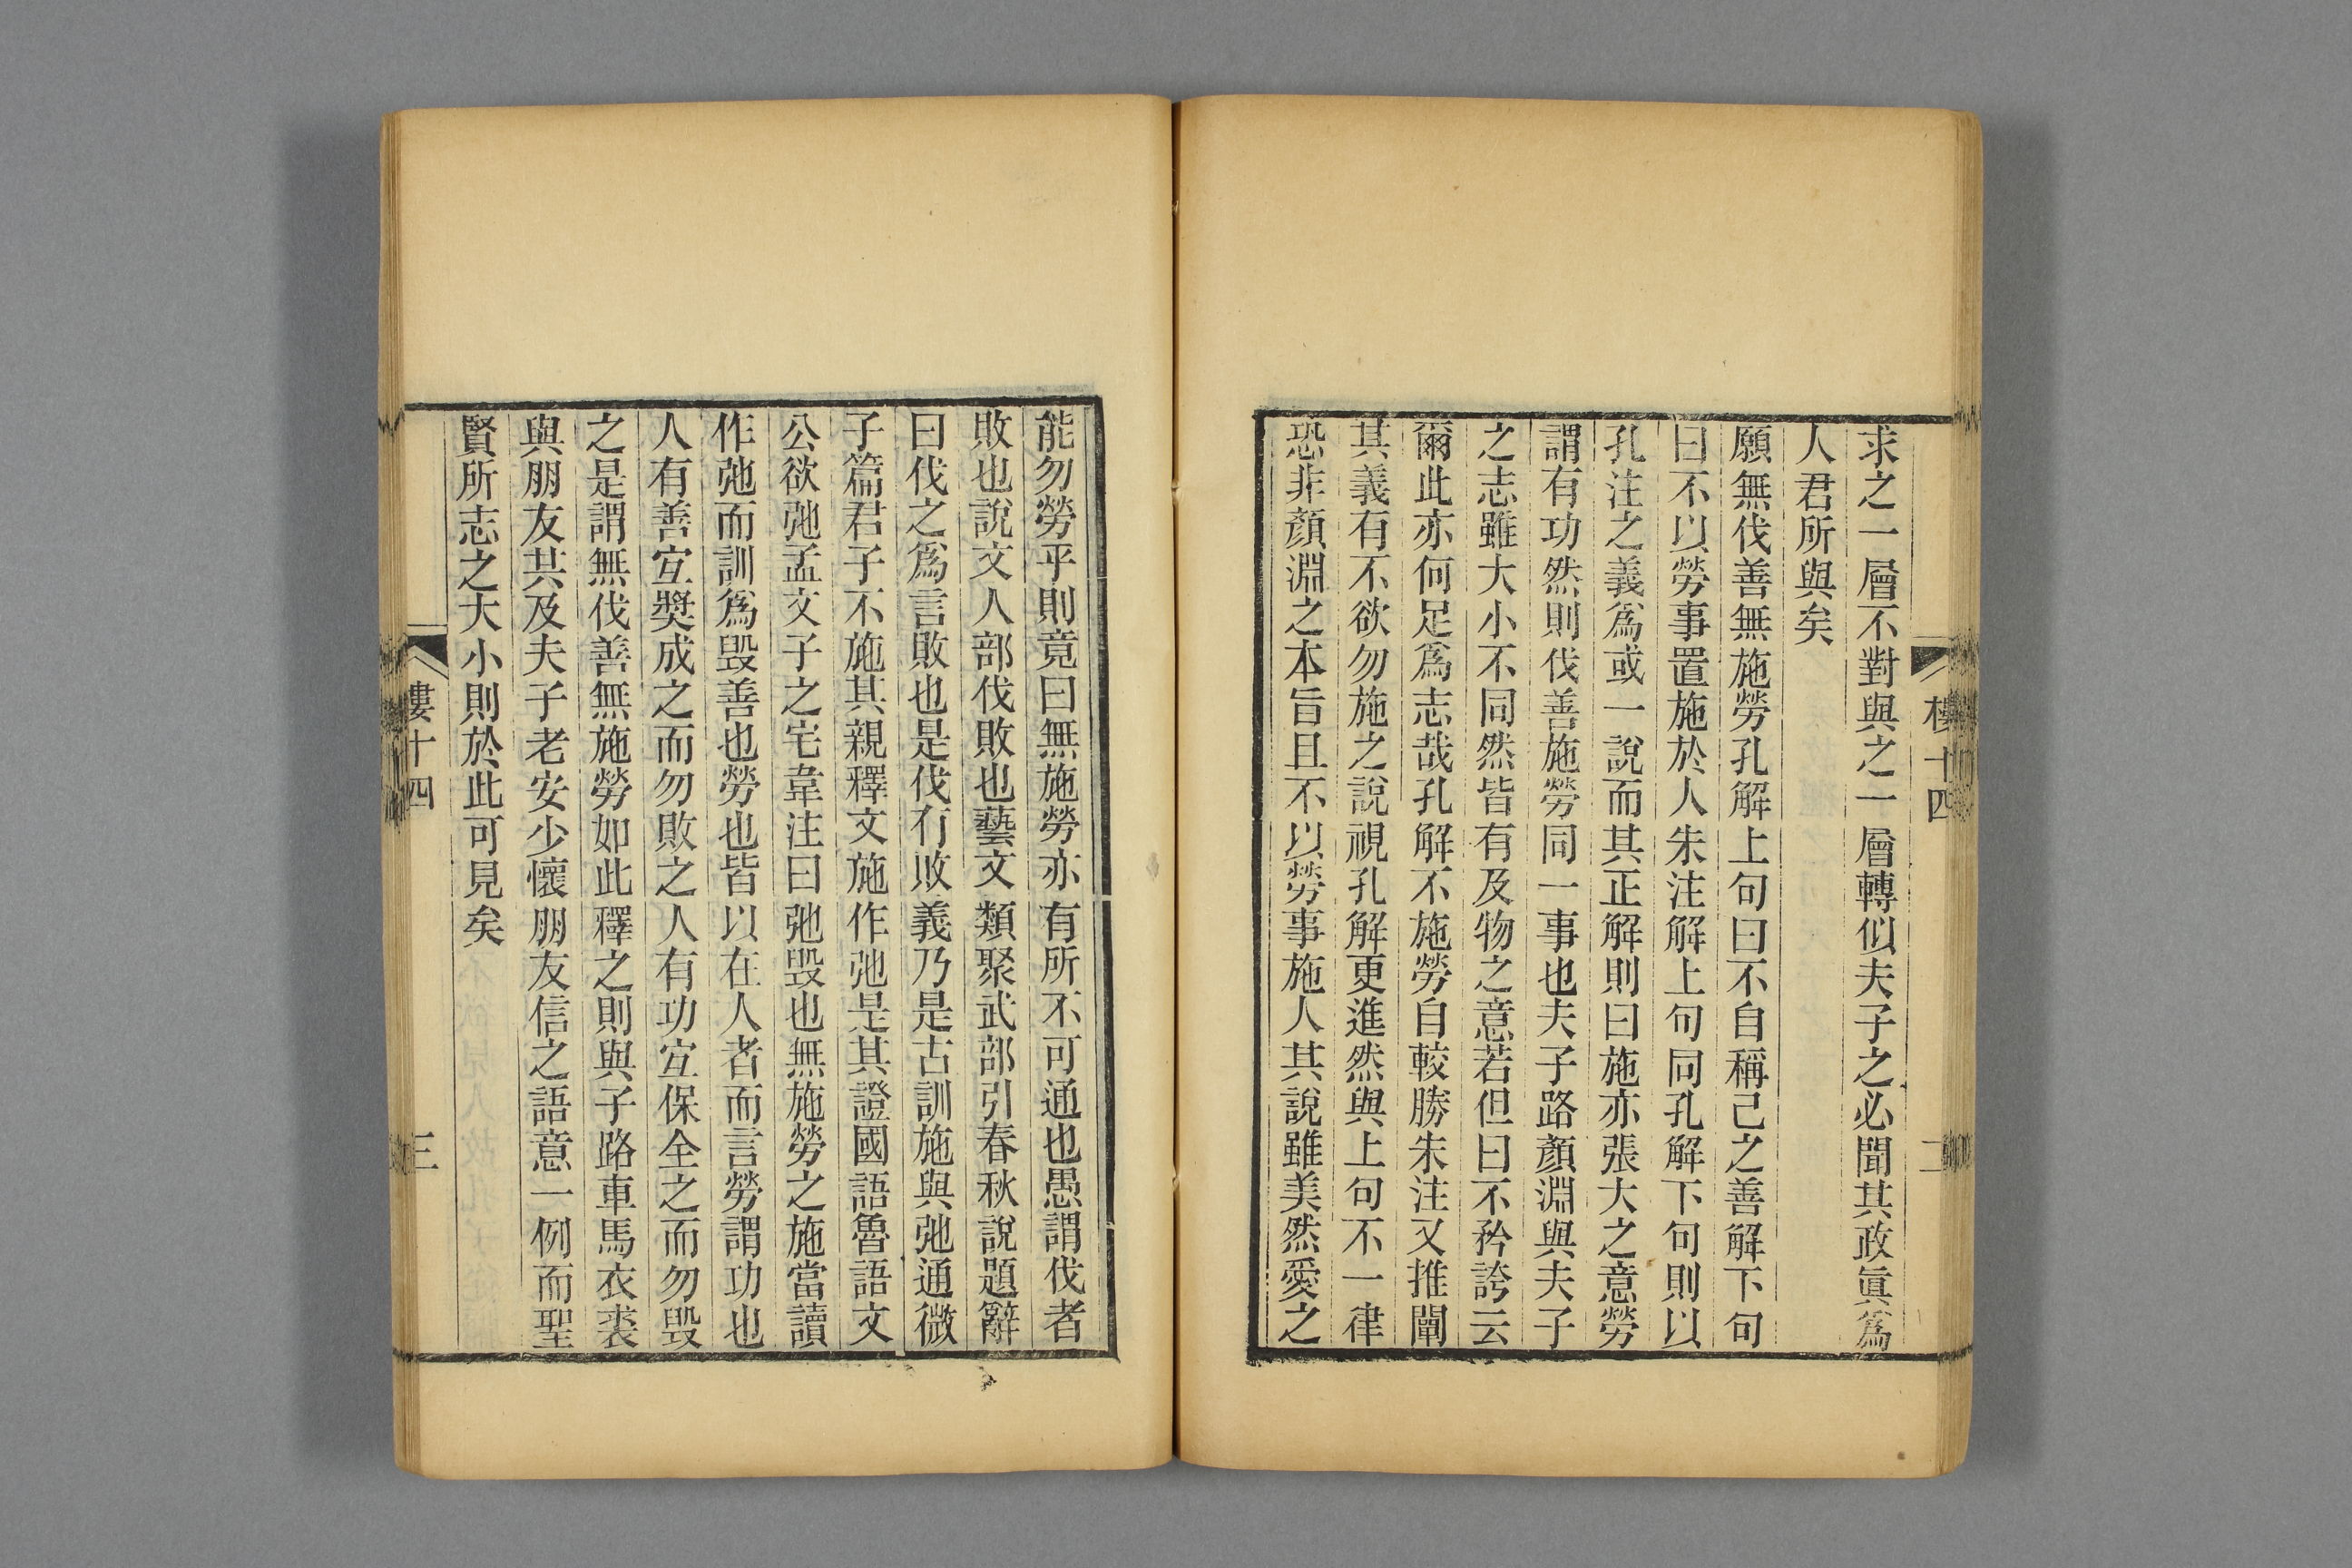 樓十四
二
求之一層不對與之一層轉似夫子之必聞其政眞爲
人君所與矣
願無伐善無施勞孔解上句曰不自稱己之善解下句
曰不以勞事置施於人朱注解上句同孔解下句則以
孔注之義爲或一說而其正解則曰施亦張大之意勞
謂有功然則伐善施勞同一事也夫子路顏淵與夫子
之志雖大小不同然皆有及物之意若但曰不矜誇云
爾此亦何足爲志哉孔解不施勞自較勝朱注又推闡
其義有不欲勿施之說視孔解更進然與上句不一律
恐非顏淵之本旨且不以勞事施人其說雖美然愛之
能勿勞乎則竟曰無施勞亦有所不可通也愚謂伐者
敗也說文人部伐敗也藝文類聚武部引春秋說題辭
曰伐之爲言敗也是伐有敗義乃是古訓施與弛通微
子篇君子不施其親釋文施作弛是其證國語魯語文
公欲弛孟文子之宅韋注曰弛毀也無施勞之施當讀
作弛而訓爲毀善也勞也皆以在人者而言勞謂功也
人有善宐奬成之而勿敗之人有功宐保全之而勿毀
之是謂無伐善無施勞如此釋之則與子路車馬衣裘
與朋友共及夫子老安少懷朋友信之語意一例而聖
賢所志之大小則於此可見矣
樓十四
三